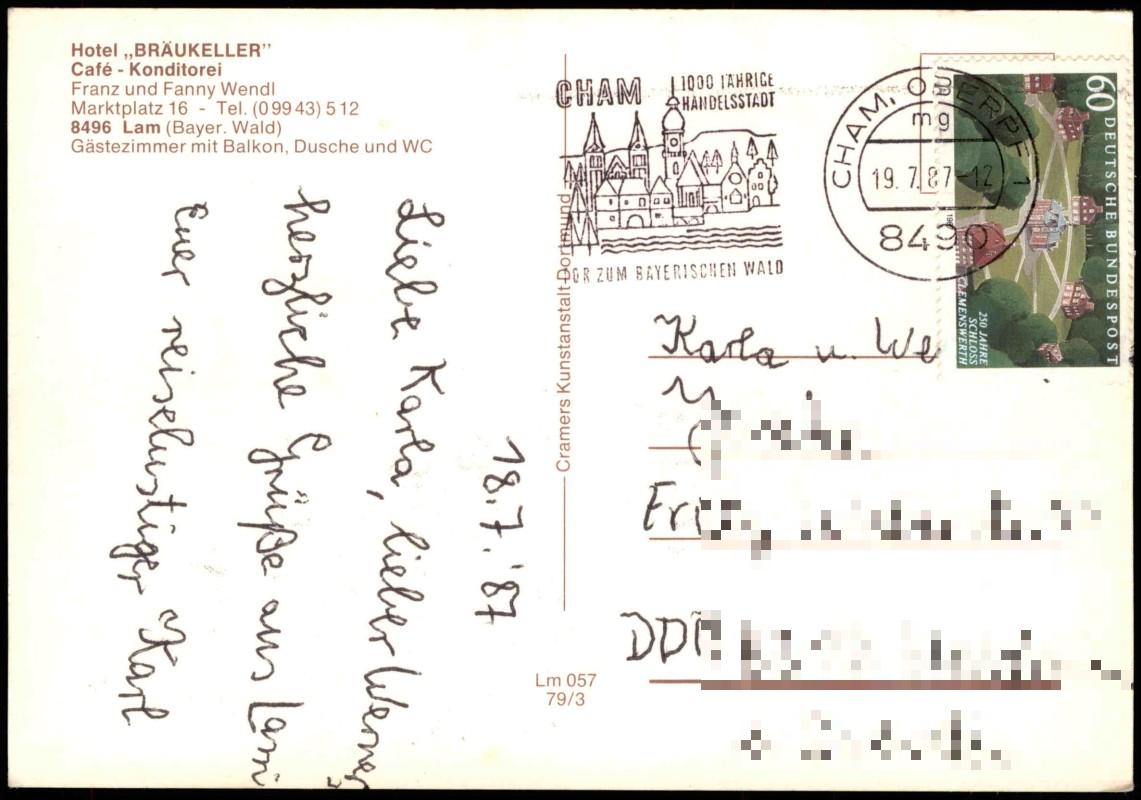 Hotel „BRÄUKELLER”
Café - Konditorei
Franz und Fanny Wendl
Marktplatz 16 - Tel. (0 99 43) 5 12
8496 Lam (Bayer. Wald)
Gästezimmer mit Balkon, Dusche und WC
18.7.'87
Liebe Karla, lieber Werner
herzliche Grüße aus Lam
Euer reiselustiger Karl
Cramers Kunstanstalt Dortmund
Lm 057
79/3
CHAM
1000 JÄHRIGE
HANDELSSTADT
TOR ZUM BAYERISCHEN WALD
CHAM, OBERPF 1
mg
19.7.87-12
8490
60 DEUTSCHE BUNDESPOST
250 JAHRE
SCHLOSS
CLEMENSWERTH
Karla u. We
Fri
DDR